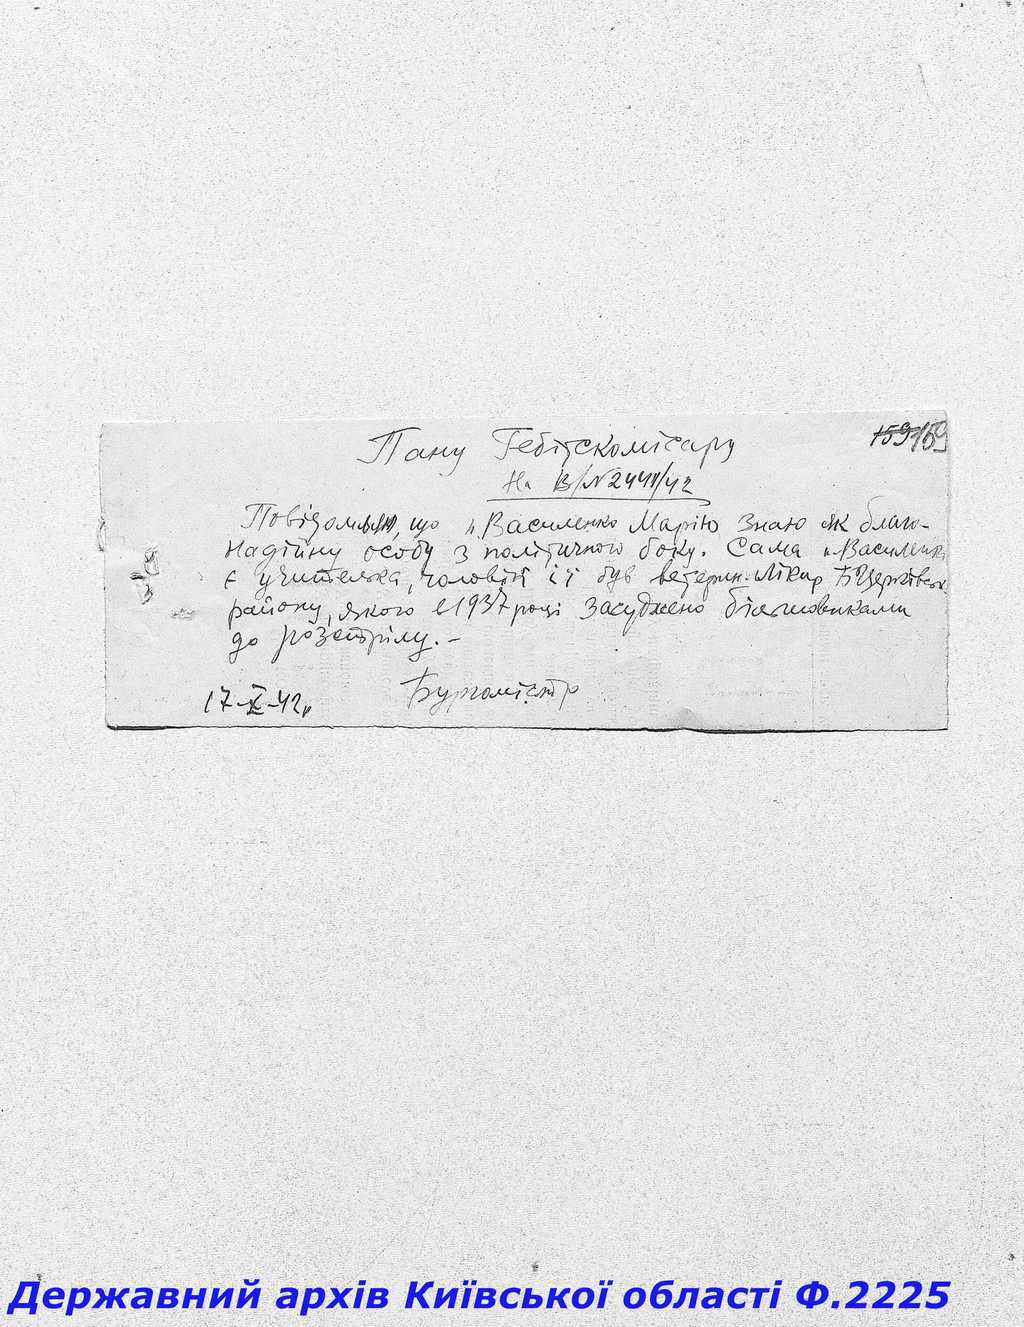 159 159
Пану Гебітскомісару
На В/№2441/42
Повідомляю, що "Василенко Марію знаю як благо-
надійну особу з політичного боку. Сама "Василенко
є учителька, чоловік її був ветерин. лікар БЦерківськ.
району, якого в 1937 році засуджено більшовиками
до розстрілу. –
17-X-42р
Бургомістр
Державний архів Київської області Ф.2225